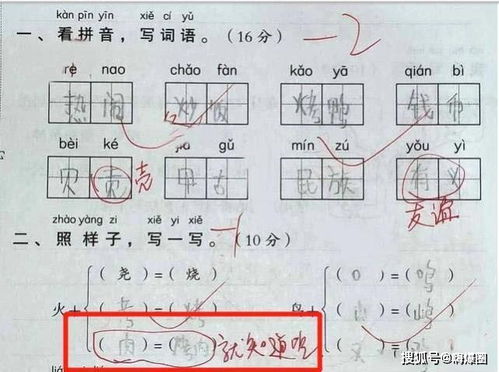 kàn pīn yīn xiě cí yǔ
一、看拼音，写词语。（16分） -2
rè nao chǎo fàn kǎo yā qián bì
热闹 炒饭 烤鸭 钱币
bèi ké jiǎ gǔ mín zú yǒu yì
贝 壳 甲古 民族 有义
友谊
zhào yàng zi xiě yi xiě
二、照样子，写一写。 -1（10分）
（尧）=（烧） （口）=（鸣）
火+ 鸟+
（ ）=（烤） （山）=（ ）
（肉）=（烤肉） 就知道吃
搜狐号@精煤圈